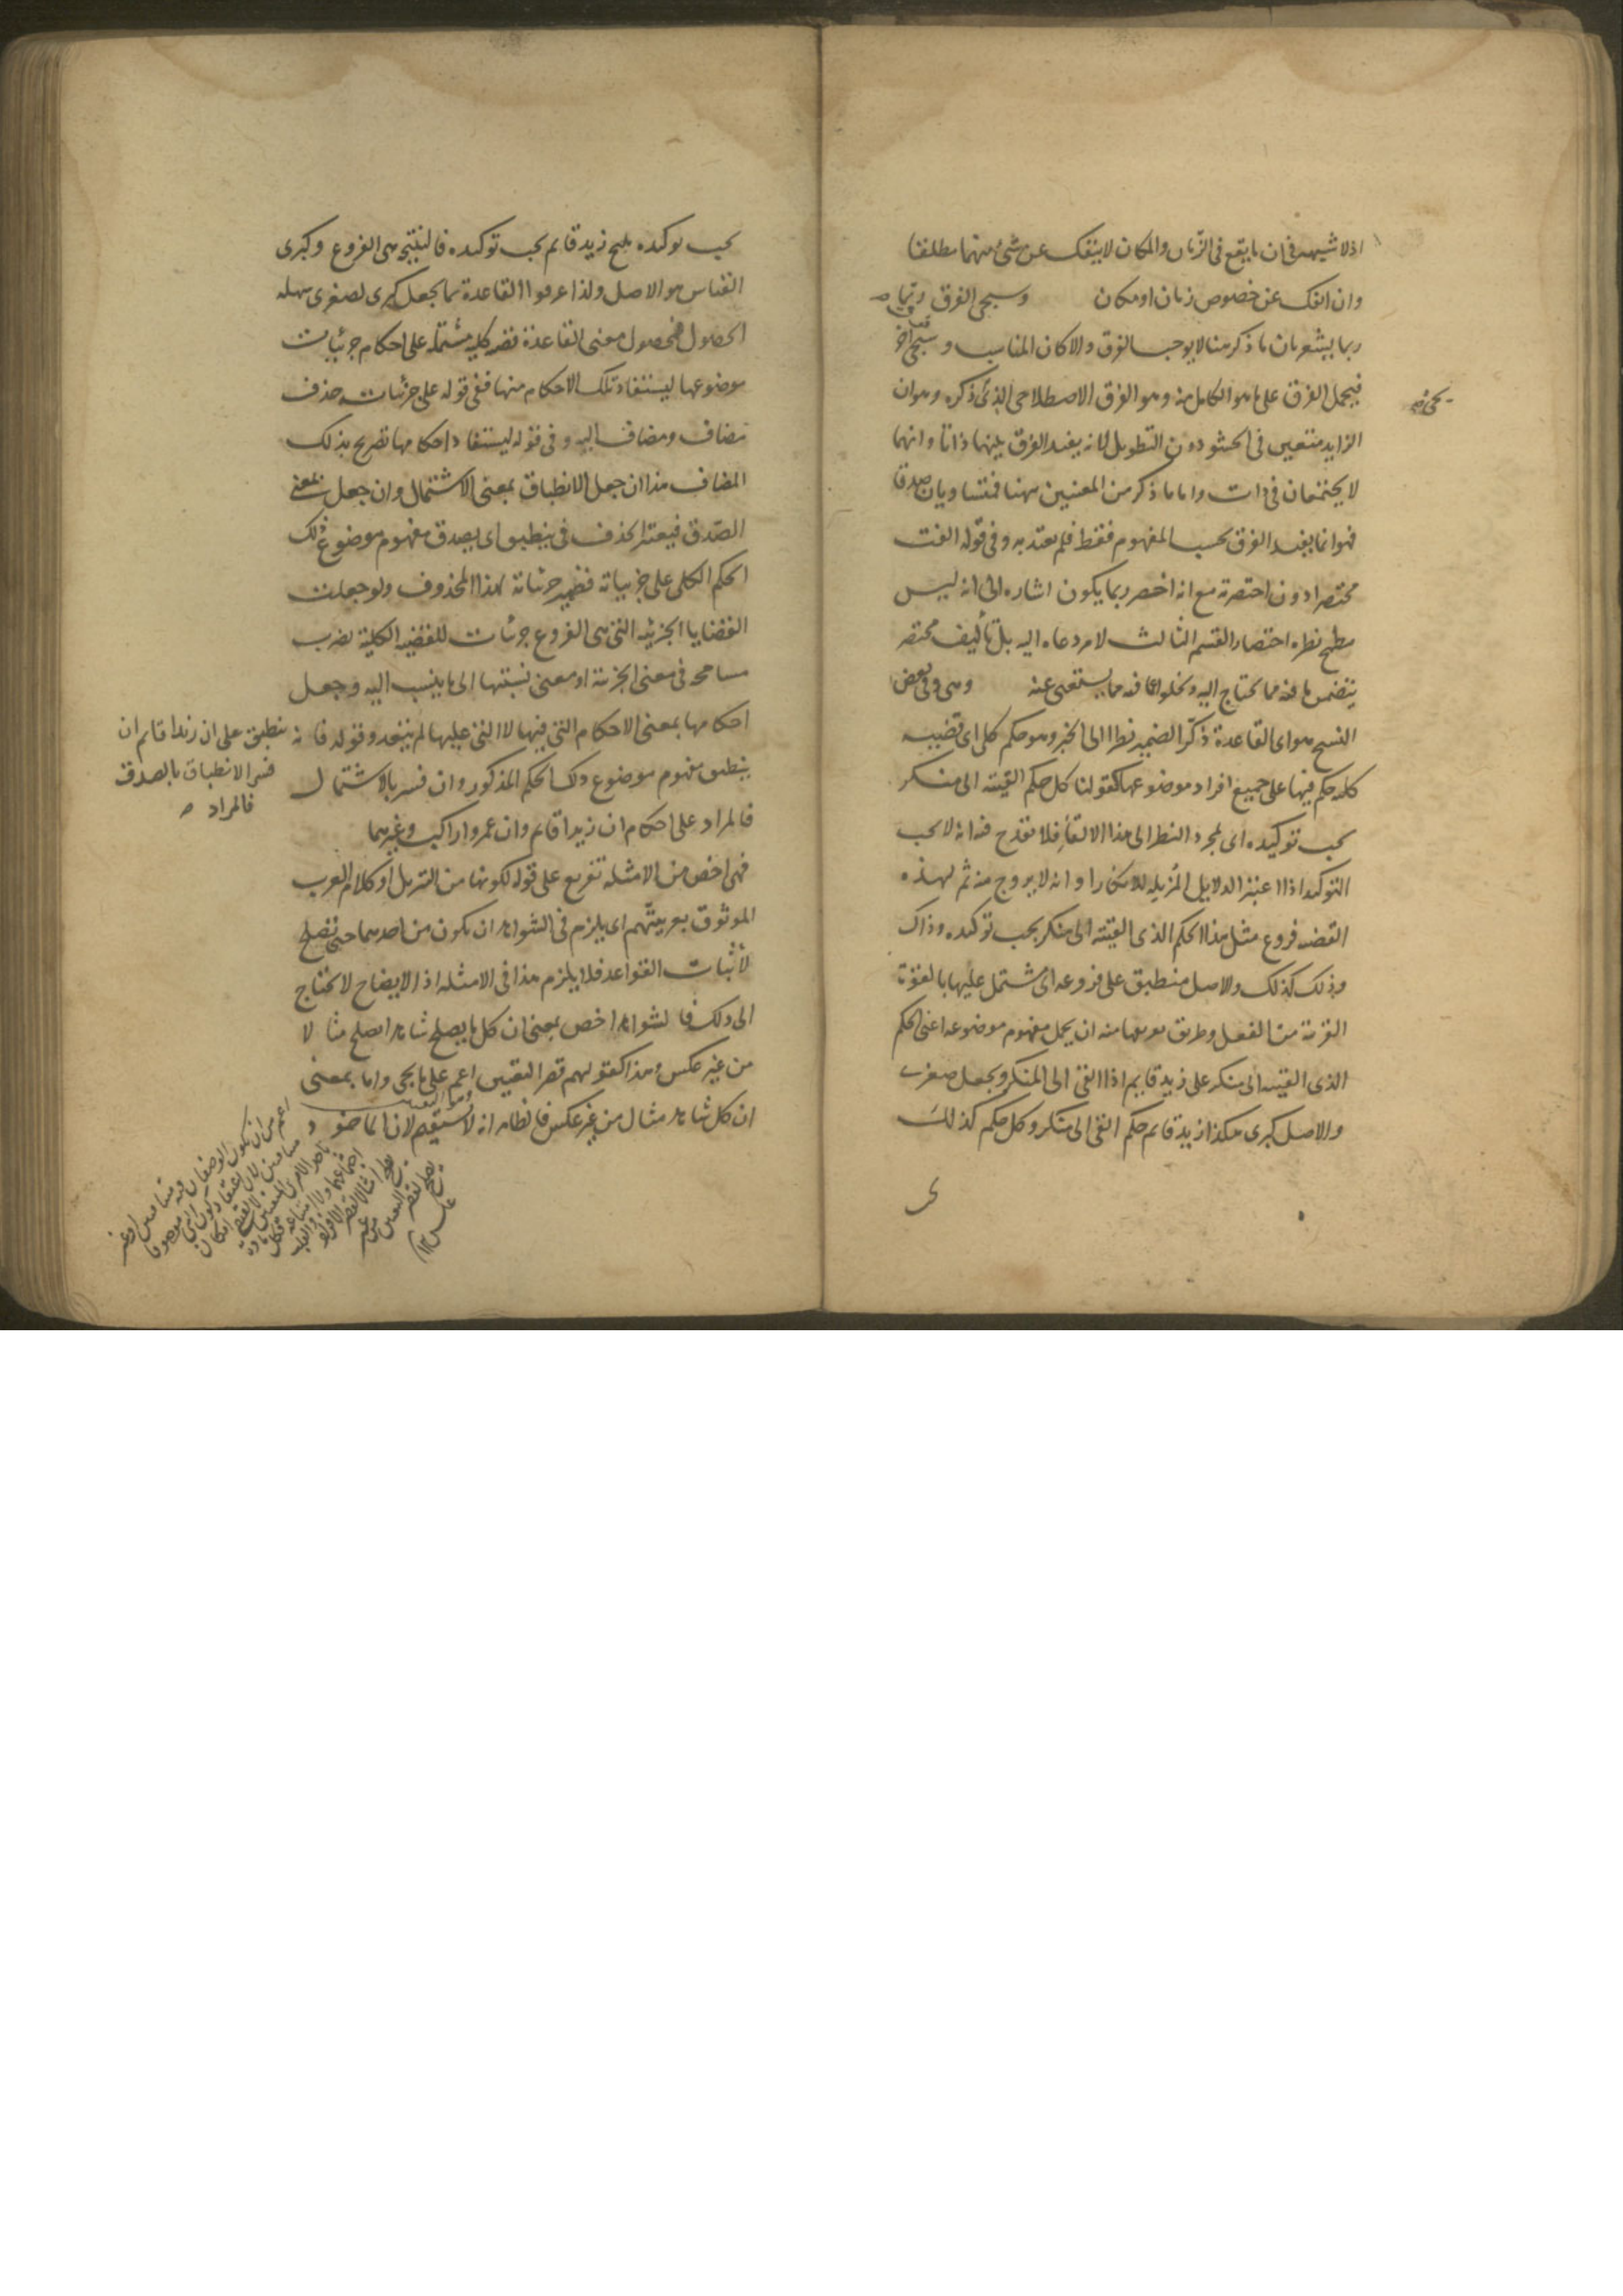 اذ لا شبهة فى ان ما يقع فى الزمان والمكان لا ينفك عن شئ منهما مطلقا
وان انفك عن خصوص زمان او مكان وسيجى الفرق
ربما يشعر بان ما ذكر هنا لا يوجب الفرق والا كان المناسب وسيجئ
فيحمل الفرق على ما هو الكامل منه وهو الفرق الاصطلاحى الذى ذكره وهو ان
الزايد متعين فى الحشو دون التطويل لانه يفيد الفرق بينهما ذاتا وانهما
لا يجتمعان فى ذات واما ما ذكر من المعنيين ههنا فمتساويان صدقا
فهو انما يفيد الفرق بحسب المفهوم فقط فلم يعتد به وفى قوله الفت
مختصرا دون اختصرته مع انه اخصر ربما يكون اشاره الى انه ليس
مطمح نظره اختصار القسم الثالث لامر دعاه اليه بل تأليف مختصر
يتضمن ما فيه مما يحتاج اليه ويخلو عما فيه مما يستغنى عنه وهى وفى بعض
النسخ هو اى القاعدة ذكر الضمير نظرا الى الخبر وهو حكم كلى اى قضيه
كليه حكم فيها على جميع افراد موضوعها كقولنا كل حكم القيته الى منكر
يجب توكيده اى بمجرد النظر الى هذا الالقاء فلا يقدح فيه انه لا يجب
التوكيد اذا اعتبر الدلايل المزيله للانكار او انه لا يروج منه ثم لهذه
القضيه فروع مثل هذا الحكم الذى القيته الى منكر يجب توكيده وذاك
وذلك كذلك والاصل منطبق على فروعه اى مشتمل عليها بالقوة
القريبة من الفعل وطريق تعريفها منه ان يحمل مفهوم موضوعه اعنى الحكم
الذى القيته الى منكر على زيد قايم اذا القى الى المنكر ويجعل صغرى
والاصل كبرى هكذا زيد قائم حكم القى الى منكر وكل حكم كذلك
يجب توكيده ينتج زيد قائم يجب توكيده فالنتيجه هى الفروع وكبرى
القياس هو الاصل ولذا عرفوا القاعدة بما يجعل كبرى لصغرى سهله
الحصول فمحصول معنى القاعدة قضيه كليه مشتمله على احكام جزئيات
موضوعها ليستفاد تلك الاحكام منها ففى قوله على جزئياته حذف
مضاف ومضاف اليه وفى قوله ليستفاد احكامها تصريح بذلك
المضاف هذا ان جعل الانطباق بمعنى الاشتمال وان جعل بمعنى
الصدق فيعتبر الحذف فى ينطبق اى يصدق مفهوم موضوع ذلك
الحكم الكلى على جزيياته فضمير جزئياته لهذا المحذوف ولو جعلت
القضايا الجزئيه التى هى الفروع جزئيات للقضيه الكلية لضرب
مسامحه فى معنى الجزئية او معنى نسبتها الى ما ينسب اليه وجعل
احكامها بمعنى الاحكام التى فيها لا التى عليها لم يبعد وقوله فانه
ينطبق مفهوم موضوع ذلك الحكم المذكور وان فسر بالاشتمال
فالمراد على احكام ان زيدا قائم وان عمروا راكب وغيرهما
فهى اخص من الامثله تفريع على قوله لكونها من التنزيل او كلام العرب
الموثوق بعربيتهم اى يلزم فى الشواهد ان يكون من احدهما حتى تصلح
لاثبات القواعد فلا يلزم هذا فى الامثله اذ الايضاح لا يحتاج
الى ذلك فالشواهد اخص بمعنى ان كل ما يصلح شاهدا يصلح مثالا
من غير عكس وهذا كقولهم قصر التعيين اعم على ما يجئ واما بمعنى
ان كل شاهد مثال من غير عكس فالظاهر انه لا يستقيم لان
ينطبق على ان زيدا قايم ان
فسر الانطباق بالصدق
فالمراد